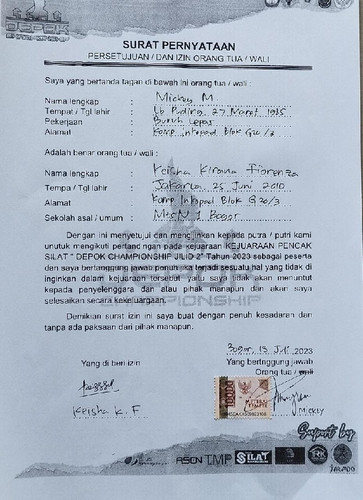 DEPOK
CHAMPIONSHIP
SURAT PERNYATAAN
PERSETUJUAN / DAN IZIN ORANG TUA / WALI
Saya yang bertanda tagan di bawah ini orang tua / wali :
Nama lengkap : Mickey M
Tempat / Tgl lahir : Lb Puding, 27 Maret 1985
Pekerjaan : Buruh Lepas
Alamat : Komp Intopad Blok G20/3
Adalah benar orang tua / wali :
Nama lengkap : Keisha Kirana Fiorenza
Tempa / Tgl lahir : Jakarta, 25 Juni 2010
Alamat : Komp Intopad Blok G20/3
Sekolah asal / umum : MtsN 1 Bogor
Dengan ini menyetujui dan mengijinkan kepada putra / putri kami
urutuk mengikuti pertandingan pada kejuaraan KEJUARAAN PENCAK
SILAT " DEPOK CHAMPIONSHIP JILID 2" Tahun 2023 sebagai peserta
dan saya bertanggung jawab penuh jika terjadi sesuatu hal yang tidak di
inginkan dalam kejuaraan tersebut yaitu saya tidak akan menuntut
kepada penyelenggara dan atau pihak manapun dan akan saya
selesaikan secara kekeluargaan.
Demikian surat izin ini saya buat dengan penuh kesadaran dan
tanpa ada paksaan dari pihak manapun.
Bogor, 13 Juli 2023
Yang di beri izin
Yang bertanggung jawab
Orang tua / wali
10000
METERAI
TEMPEL
Keisha K.F
Mickey
Support by
ASCN TMP SILAT